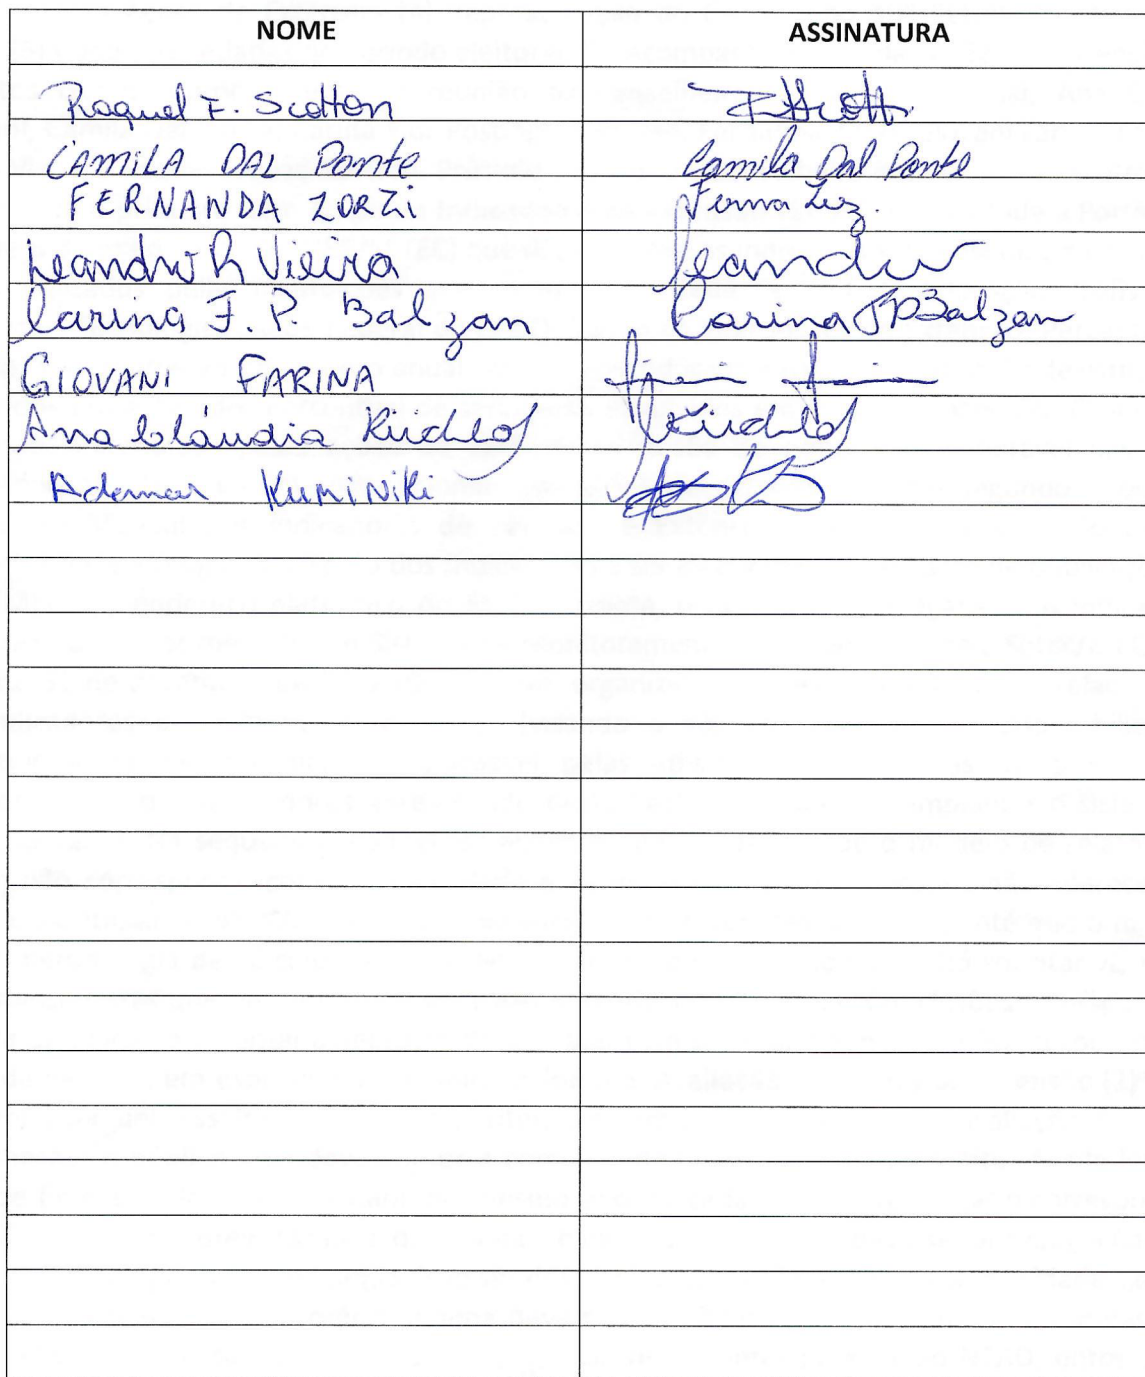 NOME ASSINATURA
Raquel F. Scotton
CAMILA DAL PONTE Camila Dal Ponte
FERNANDA ZORZI
Leandro R Vieira Leandro
Carina F. P. Balzan Carina FPBalzan
GIOVANI FARINA
Ana Cláudia Kirchhof Kirchhof
Ademar KUMINIKI